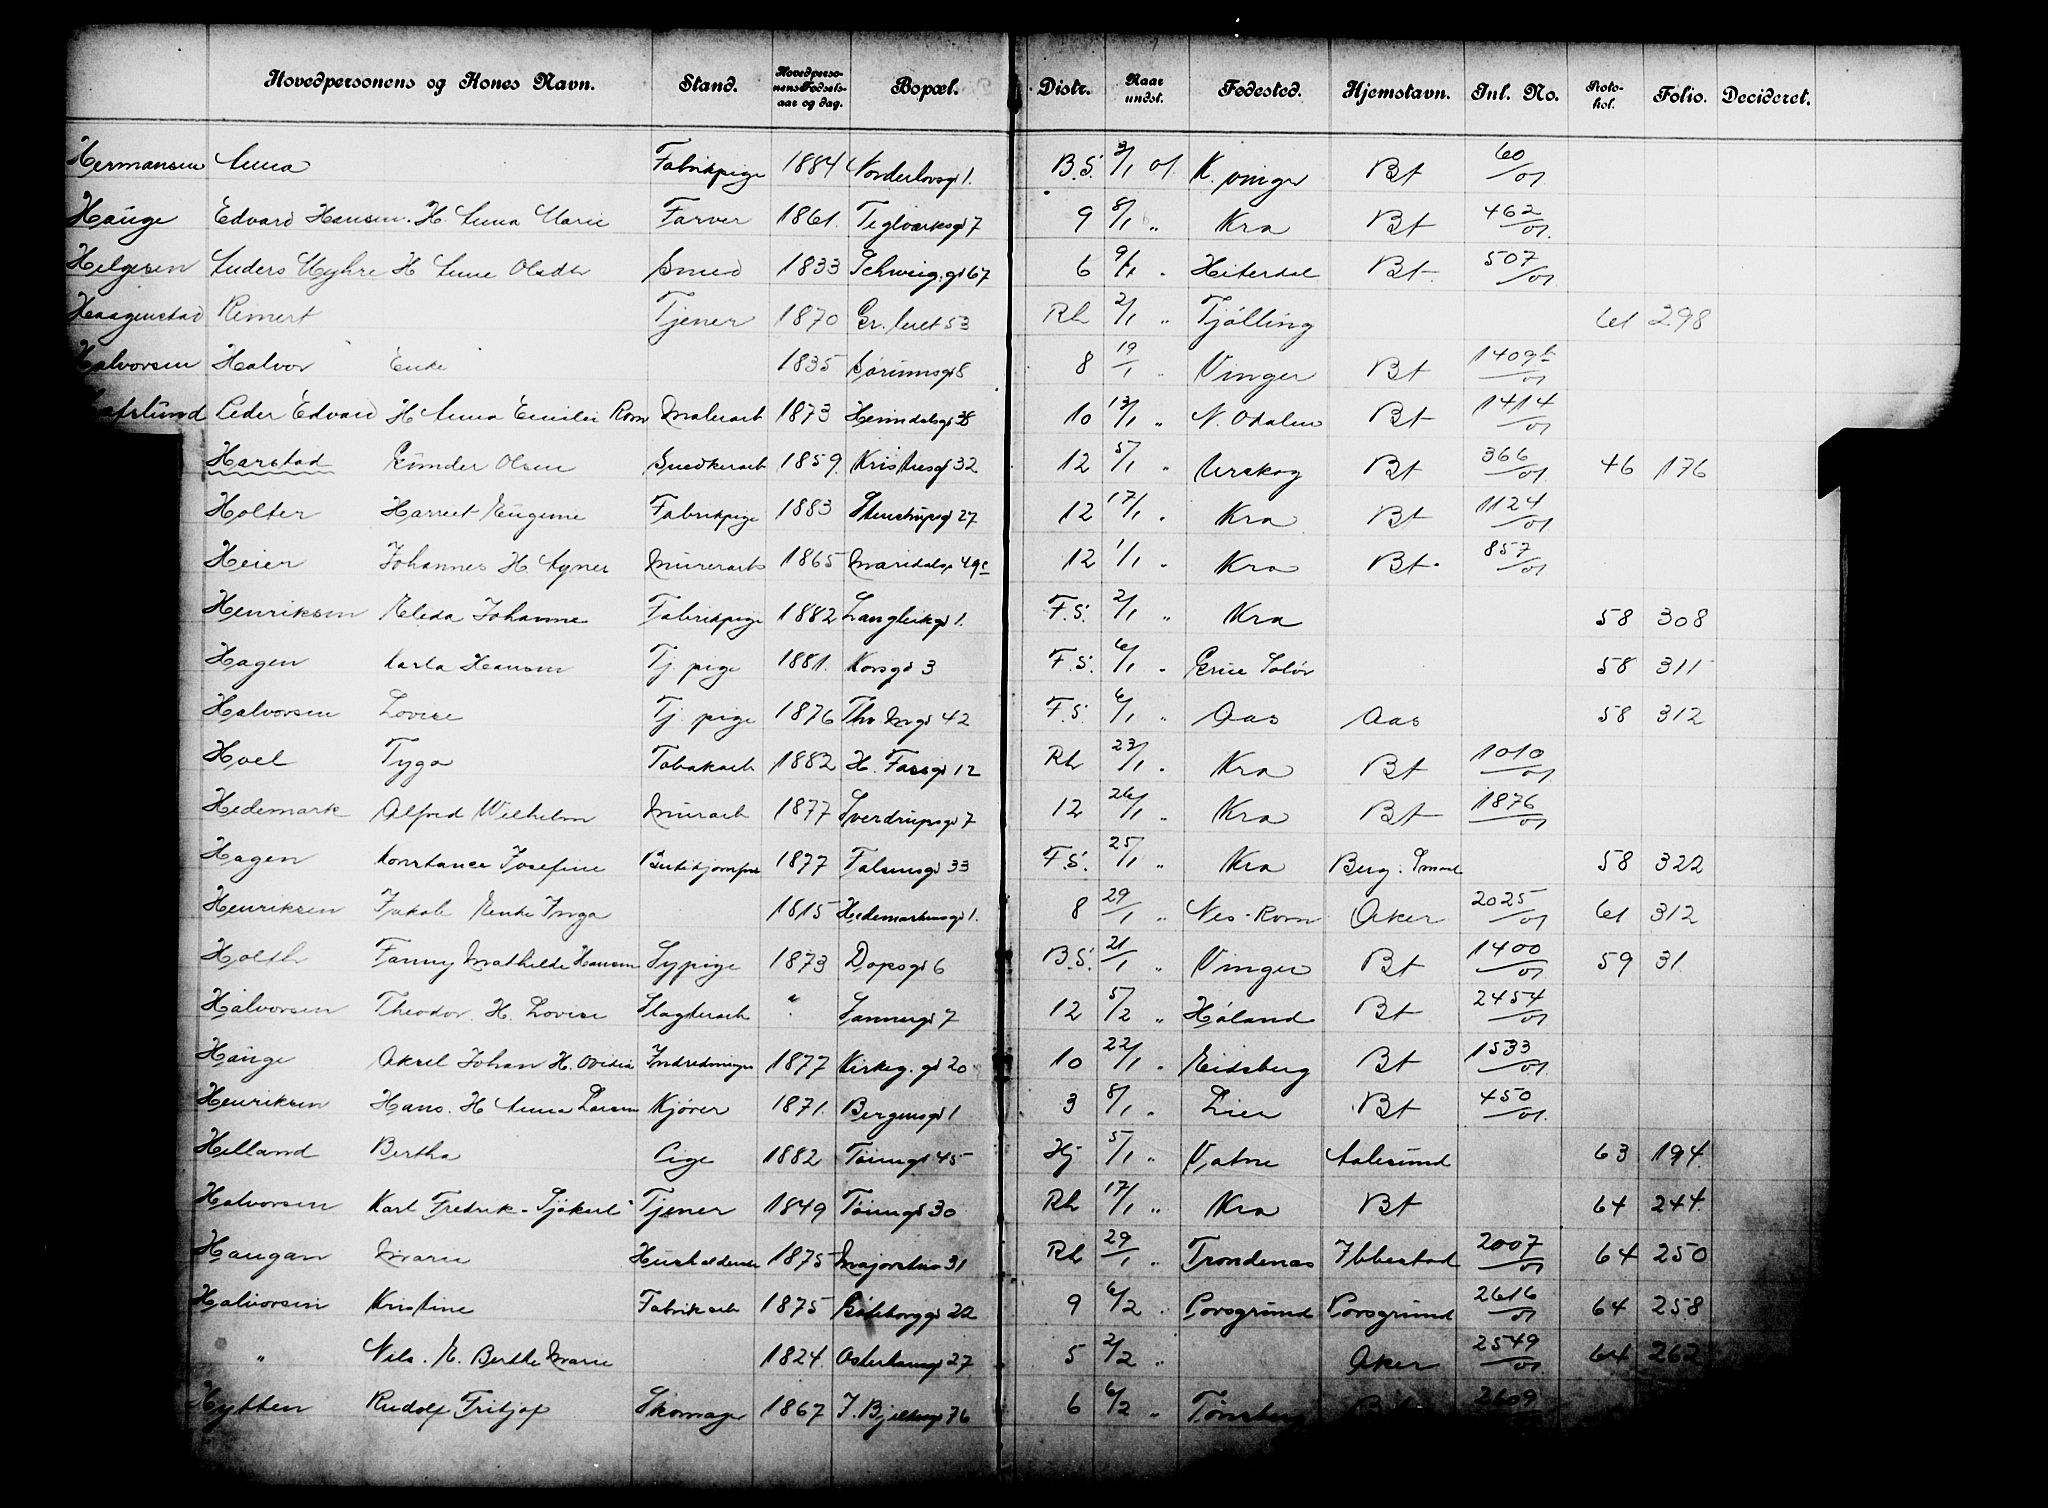 Hovedpersonens og Kones Navn. Stand. Hovedperso-nens Fødsels-aar og dag. Bopæl. Distr. Naar undst. Fødested. Hjemstavn. Inl. No. Proto-kol. Folio. Decideret.
Hermansen Anna Fabrikpige 1884 Norderhovsgd 1. B.S. 3/1 01 K. vinger Bt 60/01
Hauge Edvard Hansen. H. Anna Marie Farver 1861. Teglværksgd 7 9 8/1 " Kra Bt 462/01.
Helgesen Anders Myhre H Anne Olsdtr Smed 1833 Schweig. gd 67 6 9/1 " Hiterdal Bt 507/01.
Haagenstad Reinert Tjener 1870 Gr. leret 53 Rh 2/1 " Tjølling 61 298
Halvorsen Halvor Enke 1835 Sørumsgd 8 8 19/1 " Vinger Bt 1409b/01
Hafslund Peder Edvard H Anna Emilie Rom Malerarb 1873 Heimdalsgd 38 10 13/1 " N. Odalen Bt 1414/01
Harstad Gunder Olsen Snedkerarb 1859. Kristiesgd 32 12 5/1 " Urskog Bt 366/01. 46 176
Holter Harriet Eugenie Fabrikpige 1883 Stenstrupsgd 27 12 17/1 " Kra Bt 1124/01
Heier Johannes H. Agnes Murerarb 1865 Maridalsv 49c 12 1/1 " Kra Bt. 857/01
Henriksen Elida Johanne Fabrikpige 1882 Langleikgd 1. F.S. 2/1 " Kra 58 308
Hagen Karla Hansen Tj. pige 1881. Korsgd 3 F.S. 6/1 " Grue Solør 58 311
Halvorsen Lovise Tj. pige 1876 Thv Mgd 42 F.S. 6/1 " Aas Aas 58 312
Hoel Tyga Tobakarb 1882 H. Fossgd 12 Rh 23/1 " Kra Bt 1010/01
Hedemark Alfred Wilhelm Murarb 1877 Sverdrupsgd 7 12 26/1 " Kra Bt 1876/01
Hagen Konstance Josefine Butikjomfru 1877 Falsensgd 33 F.S. 25/1 " Kra Berg. Smaal 58 322
Henriksen Jakob Enke Inga 1815 Hedemarkensgd 1. 8 29/1 " Nes-Rom Aker 2025/01 61 312
Holth Fanny Mathilde Hansen Sypige 1873 Dopsgd 6 B.S. 21/1 " Vinger Bt 1400/01 59 31.
Halvorsen Theodor. H. Lovise Slagterarb " Sannergd 7 12 5/2 " Høland Bt 2454/01
Hauge Aksel Johan H. Ovidia 1877 Kirkeg. gd 20 10 22/1 " Eidsberg Bt 1533/01
Henriksen Hans. H Anna Larsen Kjører 1871. Bergensgd 1 3 8/1 " Lier Bt 450/01.
Helland Bertha Pige 1882 Tøiengd 45 Hj 5/1 " Vatne Aalesund 63 194.
Halvorsen Karl Fredrik Tjener 1849 Tøiengd 30 Rh 17/1 " Kra Bt 64 244.
Haugan Marie Husholderske 1875 Majorstuv 31 Rh 29/1 " Trondenes Ibbestad 2007/01 64 250
Halvorsen Kristine Fabrikarb 1875 Gøteborggd 22 9 6/2 " Porsgrund Porsgrund 2616/01 64 258
" Nils. E. Berthe Marie 1824. Osterhausgd 27 5 2/2 " Aker 2549/01 64 262
Hytten Rudolf Fritjof Skomager 1867 J. Bjelkesgd 76 6 6/2 " Tønsberg Bt 2609